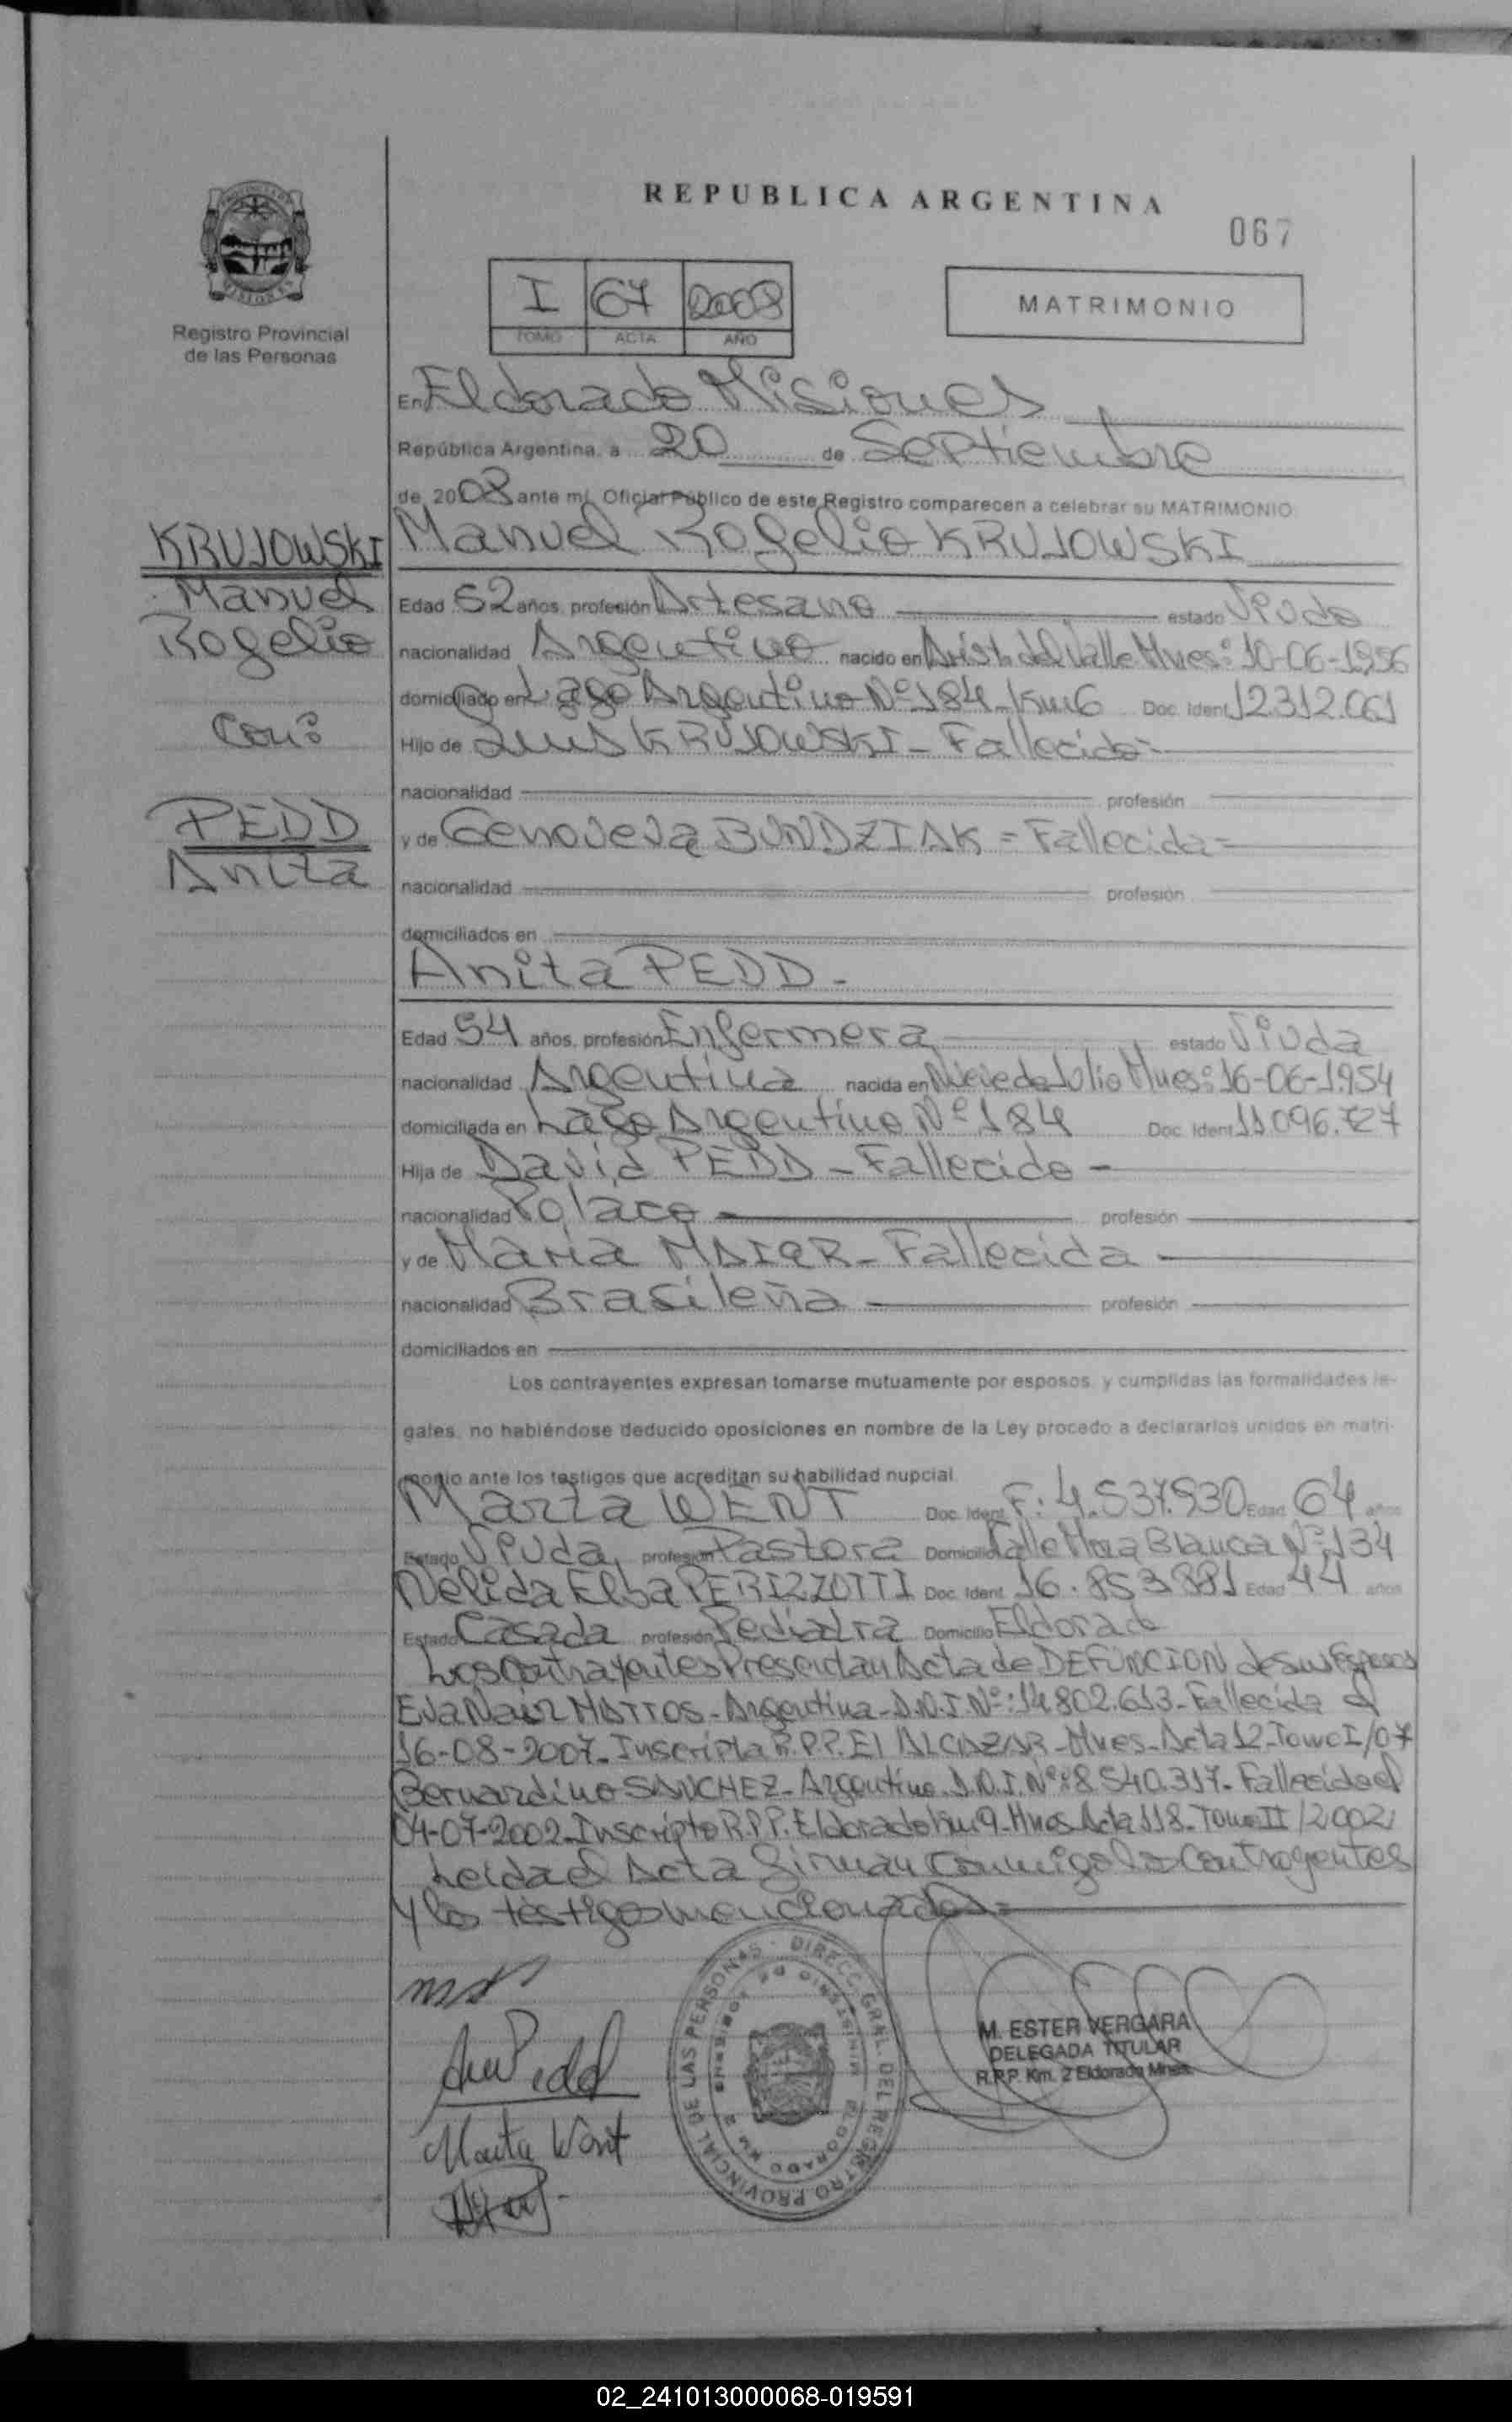 REPUBLICA ARGENTINA
067
PROVINCIA DE
MISIONES
Registro Provincial
de las Personas
I 67 2008
TOMO ACTA AÑO
MATRIMONIO
En Eldorado Misiones
República Argentina, a 20 de Septiembre
de 2008 ante mí, Oficial Público de este Registro comparecen a celebrar su MATRIMONIO:
KRUJOWSKI
Manuel
Rogelio
Con:
PEDD
Anita
Manuel Rogelio KRUJOWSKI
Edad 52 años, profesión Artesano estado Viudo
nacionalidad Argentino nacido en Arist. del Valle Mnes: 10-06-1956
domiciliado en Lago Argentino Nº 184-Km6 Doc. Ident. 12.312.061
Hijo de Luis KRUJOWSKI - Fallecido=
nacionalidad profesión
y de Genoveva BUNDZIAK = Fallecida=
nacionalidad profesión
domiciliados en
Anita PEDD -
Edad 54 años, profesión Enfermera estado Viuda
nacionalidad Argentina nacida en Nueve de Julio Mnes: 16-06-1954
domiciliada en Lago Argentino Nº 184 Doc. Ident. 11.096.727
Hija de David PEDD - Fallecido -
nacionalidad Polaco profesión
y de Maria - Fallecida
nacionalidad Brasileña profesión
domiciliados en
Los contrayentes expresan tomarse mutuamente por esposos, y cumplidas las formalidades le-
gales, no habiéndose deducido oposiciones en nombre de la Ley procedo a declararlos unidos en matri-
monio ante los testigos que acreditan su habilidad nupcial
Marta WENT Doc. Ident. F: 4.537.930 Edad 64 años
Estado Viuda, profesión Pastora Domicilio Calle Blanca Nº 134
Nélida Elba PERIZZOTTI Doc. Ident. 16.853.881 Edad 44 años
Estado Casada profesión Pediatra Domicilio Eldorado
Los Contrayentes Presentan Acta de DEFUNCION de sus Esposos
Eva Nair MATTOS - Argentina - D.N.I. Nº: 14.802.613 - Fallecida el
16-08-2007. Inscripta R.P.P. El ALCAZAR - Mnes - Acta 12 - Tomo I/07
Bernardino SANCHEZ - Argentino D.N.I. Nº: 8.540.317 - Fallecido el
04-07-2002 - Inscripto R.P.P. Eldorado Km 9 - Mnes Acta 118 - Tomo II/2002
Leida el Acta firman conmigo los Contrayentes
y los testigos mencionados=
Marta Went
DIREC. GRAL. DEL REGISTRO PROVINCIAL DE LAS PERSONAS
MINISTERIO DE GOBIERNO
ELDORADO KM 2
M. ESTER VERGARA
DELEGADA TITULAR
R.P.P. Km. 2 Eldorado Mnes.
02_241013000068-019591